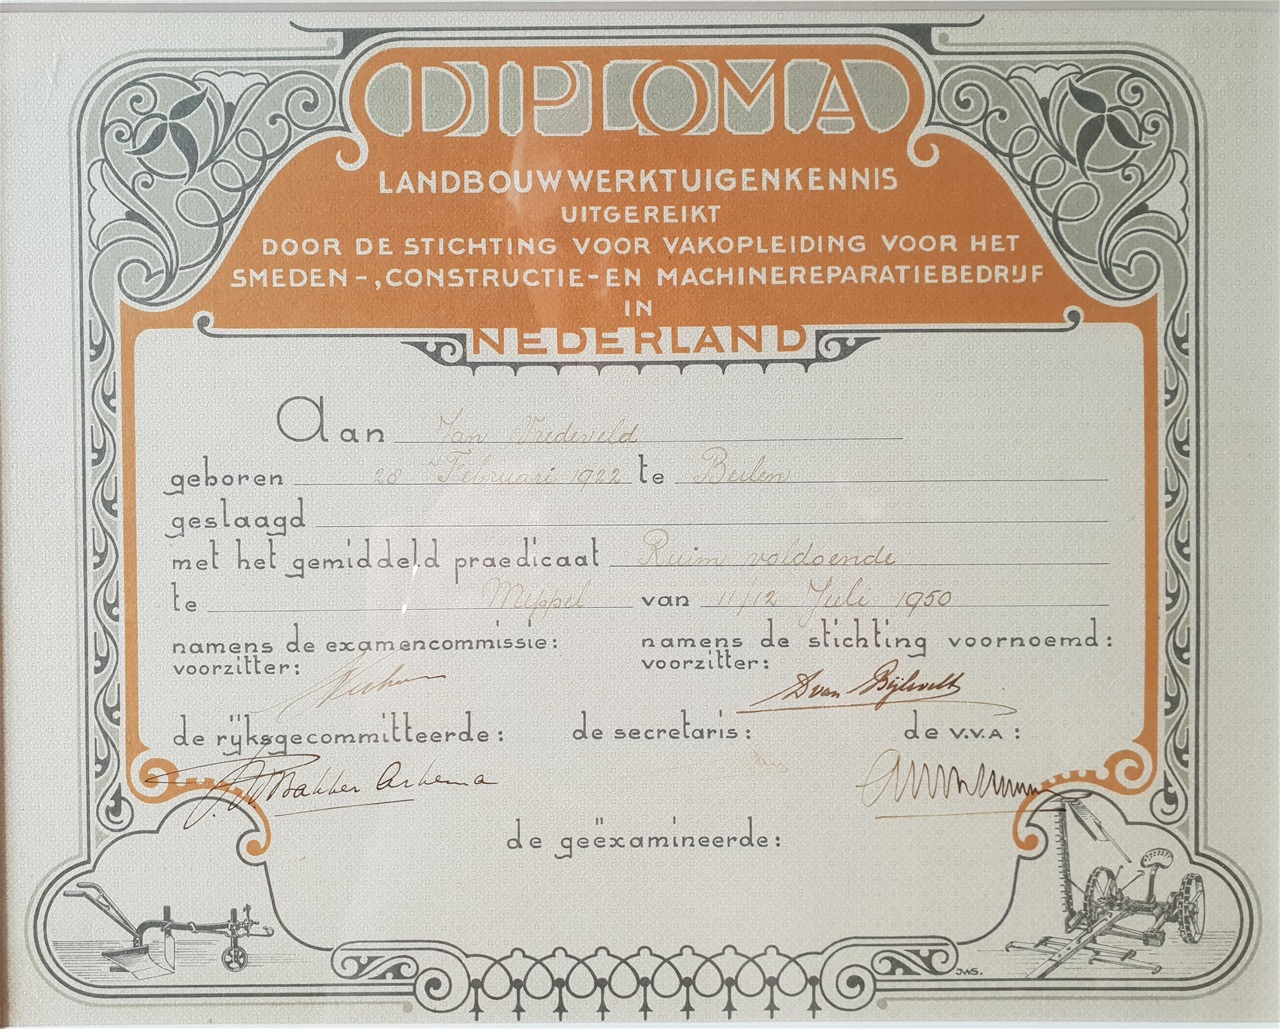 DIPLOMA
LANDBOUWWERKTUIGENKENNIS
UITGEREIKT
DOOR DE STICHTING VOOR VAKOPLEIDING VOOR HET
SMEDEN-, CONSTRUCTIE- EN MACHINEREPARATIEBEDRIJF
IN
NEDERLAND
Aan Jan Vredeveld
geboren 28 Februari 1922 te Beilen
geslaagd
met het gemiddeld praedicaat Ruim voldoende
te Meppel van 11/12 Juli 1950
namens de examencommissie: namens de stichting voornoemd:
voorzitter: voorzitter:
D van Bijlevelt
de rijksgecommitteerde: de secretaris: de V.V.A:
Bakker Arkema
de geëxamineerde:
JWS.